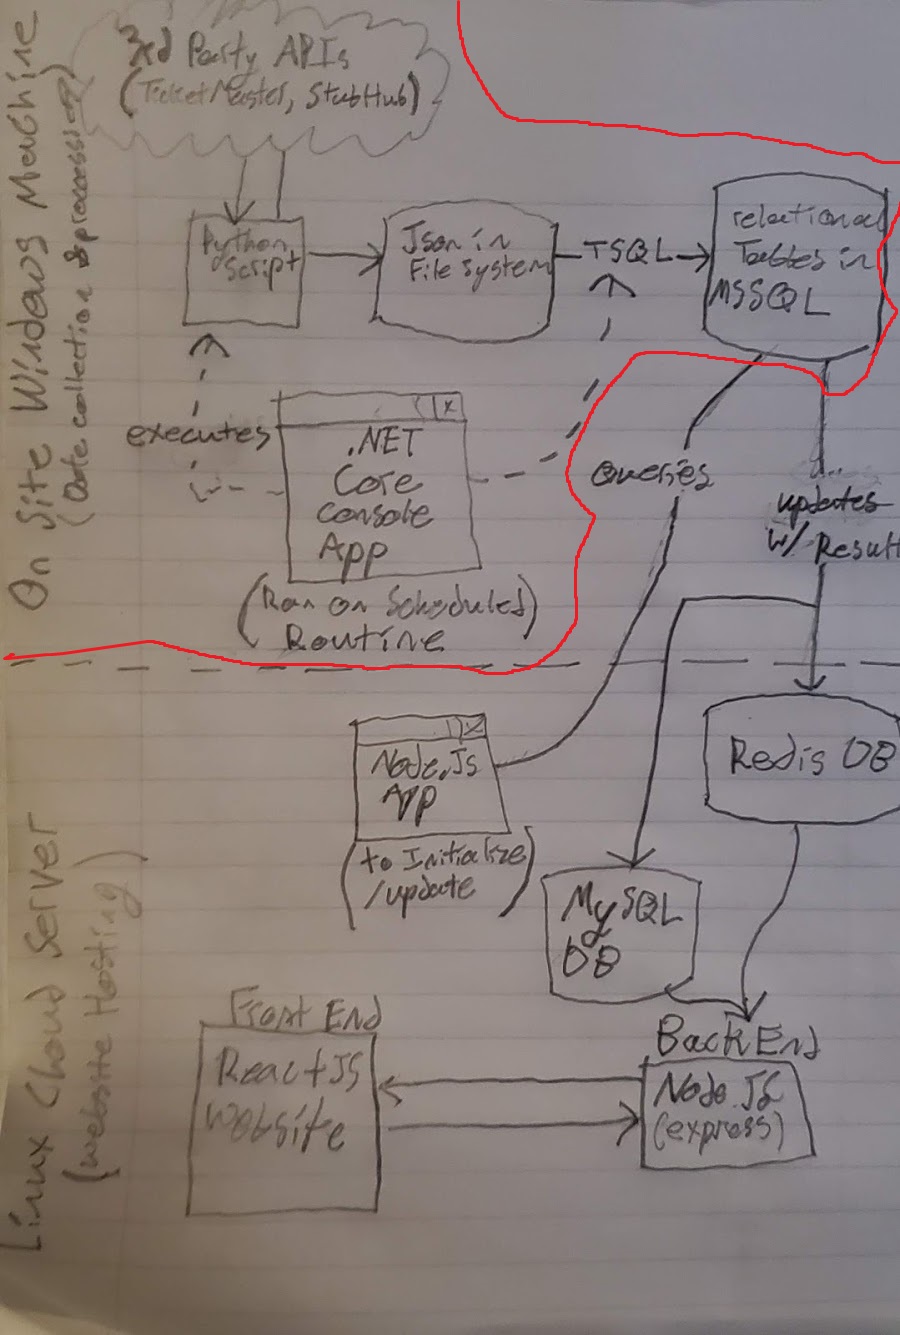 On Site Windows Machine
(Data collection & processing)
3rd Party APIs
(TicketMaster, StubHub)
Python
Script
Json in
File System
TSQL
relational
Tables in
MSSQL
executes
.NET
Core
Console
App
(Ran on Scheduled)
Routine
Queries
updates
w/ Result
Linux Cloud Server
(Website Hosting)
Node.Js
App
(to Initialize
/update)
Redis DB
MySQL
DB
Front End
ReactJS
Website
Back End
Node JS
(express)